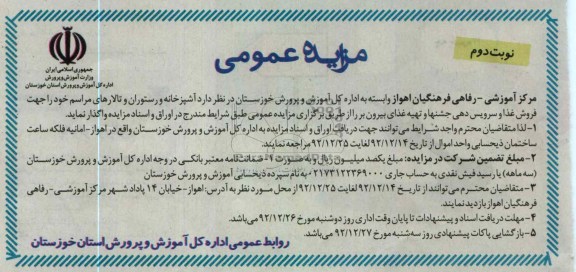 نوبت دوم
مزایده عمومی
جمهوری اسلامی ایران
وزارت آموزش و پرورش
اداره کل آموزش و پرورش استان خوزستان
مرکز آموزشی - رفاهی فرهنگیان اهواز وابسته به اداره کل آموزش و پرورش خوزستان در نظر دارد آشپزخانه و رستوران و تالارهای مراسم خود را جهت
فروش غذا و سرویس دهی جشنها و تهیه غذای بیرون بر را از طریق برگزاری مزایده عمومی طبق شرایط مندرج در اوراق و اسناد مزایده واگذار نماید.
۱- لذا متقاضیان محترم واجد شرایط می توانند جهت دریافت اوراق و اسناد مزایده به اداره کل آموزش و پرورش خوزستان واقع در اهواز - امانیه فلکه ساعت
ساختمان ذیحسابی واحد اموال از تاریخ ۹۲/۱۲/۱۴ لغایت ۹۲/۱۲/۲۵ مراجعه نمایند.
۲- مبلغ تضمین شرکت در مزایده: مبلغ یکصد میلیون ریال به صورت ۱- ضمانت نامه معتبر بانکی در وجه اداره کل آموزش و پرورش خوزستان
(سه ماهه) یا رسید فیش نقدی به حساب جاری ۲۱۷۳۱۲۲۳۶۹۰۰۰ به نام سپرده ذیحسابی آموزش و پرورش خوزستان
۳- متقاضیان محترم می توانند از تاریخ ۹۲/۱۲/۱۴ لغایت ۹۲/۱۲/۲۵ از محل مورد نظر به آدرس: اهواز - خیابان ۱۴ پاداد شهر مرکز آموزشی - رفاهی
فرهنگیان اهواز بازدید نمایند.
۴- مهلت دریافت اسناد و پیشنهادات تا پایان وقت اداری روز دوشنبه مورخ ۹۲/۱۲/۲۶ می باشد.
۵- بازگشایی پاکات پیشنهادی روز سه شنبه مورخ ۹۲/۱۲/۲۷ می باشد.
روابط عمومی اداره کل آموزش و پرورش استان خوزستان